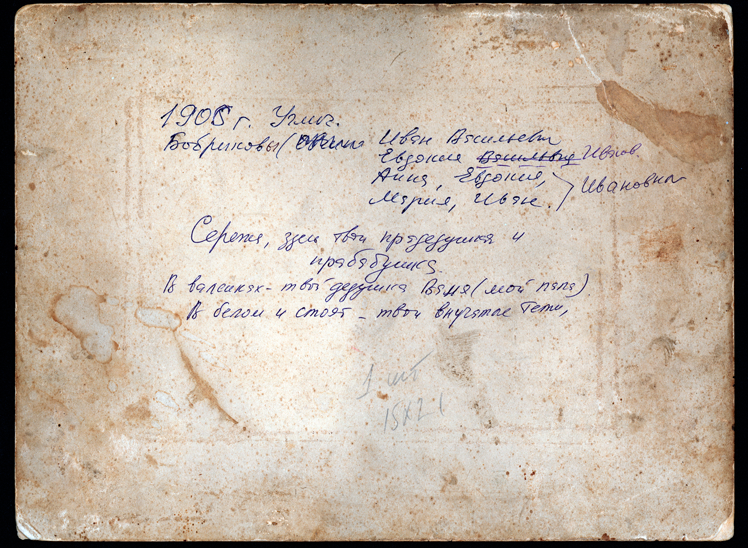 1905 г. Углич.
Бобриковы ( Иван Васильевич
Евдокия Васильевна Иванов.
Анна, Евдокия,
Мария, Иван. } Ивановны
Сережа, здесь твои прадедушка и
прабабушка.
В валенках - твой дедушка Ваня (мой папа)
В белом и стоят - твои внучатые тети,
1 шт
18х2